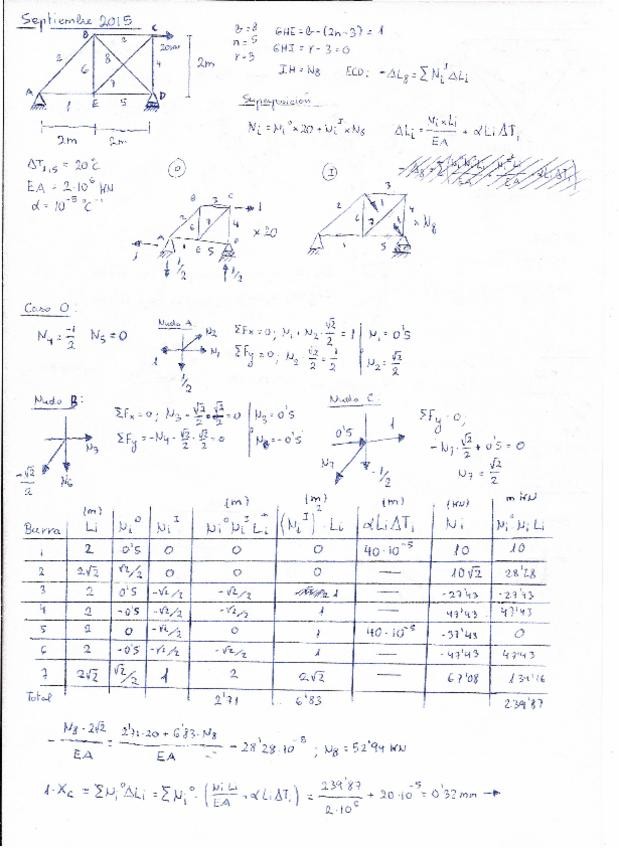 Septiembre 2015
b=8 GHE = b-(2n-3) = 1
n=5 GHI = r-3=0
r=3 IH = N8 ECD: -ΔL8 = ΣNi^I ΔLi
B 3 C 20kN
2 6 8 7 4 2m
A 1 E 5 D
2m 2m
Superposición
Ni = Ni^0×20 + Ni^I×N8 ΔLi = Ni×Li/EA + αLiΔTi
ΔT1,5 = 20°C
EA = 2·10^6 kN
α = 10^-5 °C^-1
0 I
B 3 C 1
2 6 7 4
A 1 E 5
1 1/2 1/2
×20
3
2 6 7 1 4
1 5
×N8
Caso 0:
N4 = -1/2 N5 = 0
Nudo A
N2
1 N1
1/2
ΣFx=0; N1+N2·√2/2 = 1 | N1=0'5
ΣFy=0; N2·√2/2 = 1/2 | N2=√2/2
Nudo B:
N3
√2/2 N6
ΣFx=0; N3-√2/2·√2/2=0 | N3=0'5
ΣFy=-N6-√2/2·√2/2=0 | N6=-0'5
Nudo C:
0'5 1
N7 -1/2
ΣFy=0;
-N7·√2/2+0'5=0
N7=√2/2
(m) (m) (m) (m) (kN) m kN
Barra Li Ni^0 Ni^I Ni^0 Ni^I Li (Ni^I)^2·Li αLiΔTi Ni Ni^0 Ni Li
1 2 0'5 0 0 0 40·10^-5 10 10
2 2√2 √2/2 0 0 0 — 10√2 28'28
3 2 0'5 -√2/2 -√2/2 1 — -27'43 -27'43
4 2 -0'5 -√2/2 -√2/2 1 — -47'43 47'43
5 2 0 -√2/2 0 1 40·10^-5 -37'43 0
6 2 -0'5 -√2/2 -√2/2 1 — -47'43 47'43
7 2√2 √2/2 1 2 2√2 — 67'08 134'16
Total 2'71 6'83 239'87
-N8·2√2/EA = (2'71·20+6'83·N8)/EA - 28'28·10^-5; N8=52'94 kN
1·Xc = ΣNi^0ΔLi = ΣNi^0·(NiLi/EA+αLiΔTi) = 239'87/2·10^6 + 20·10^-5 = 0'32 mm →